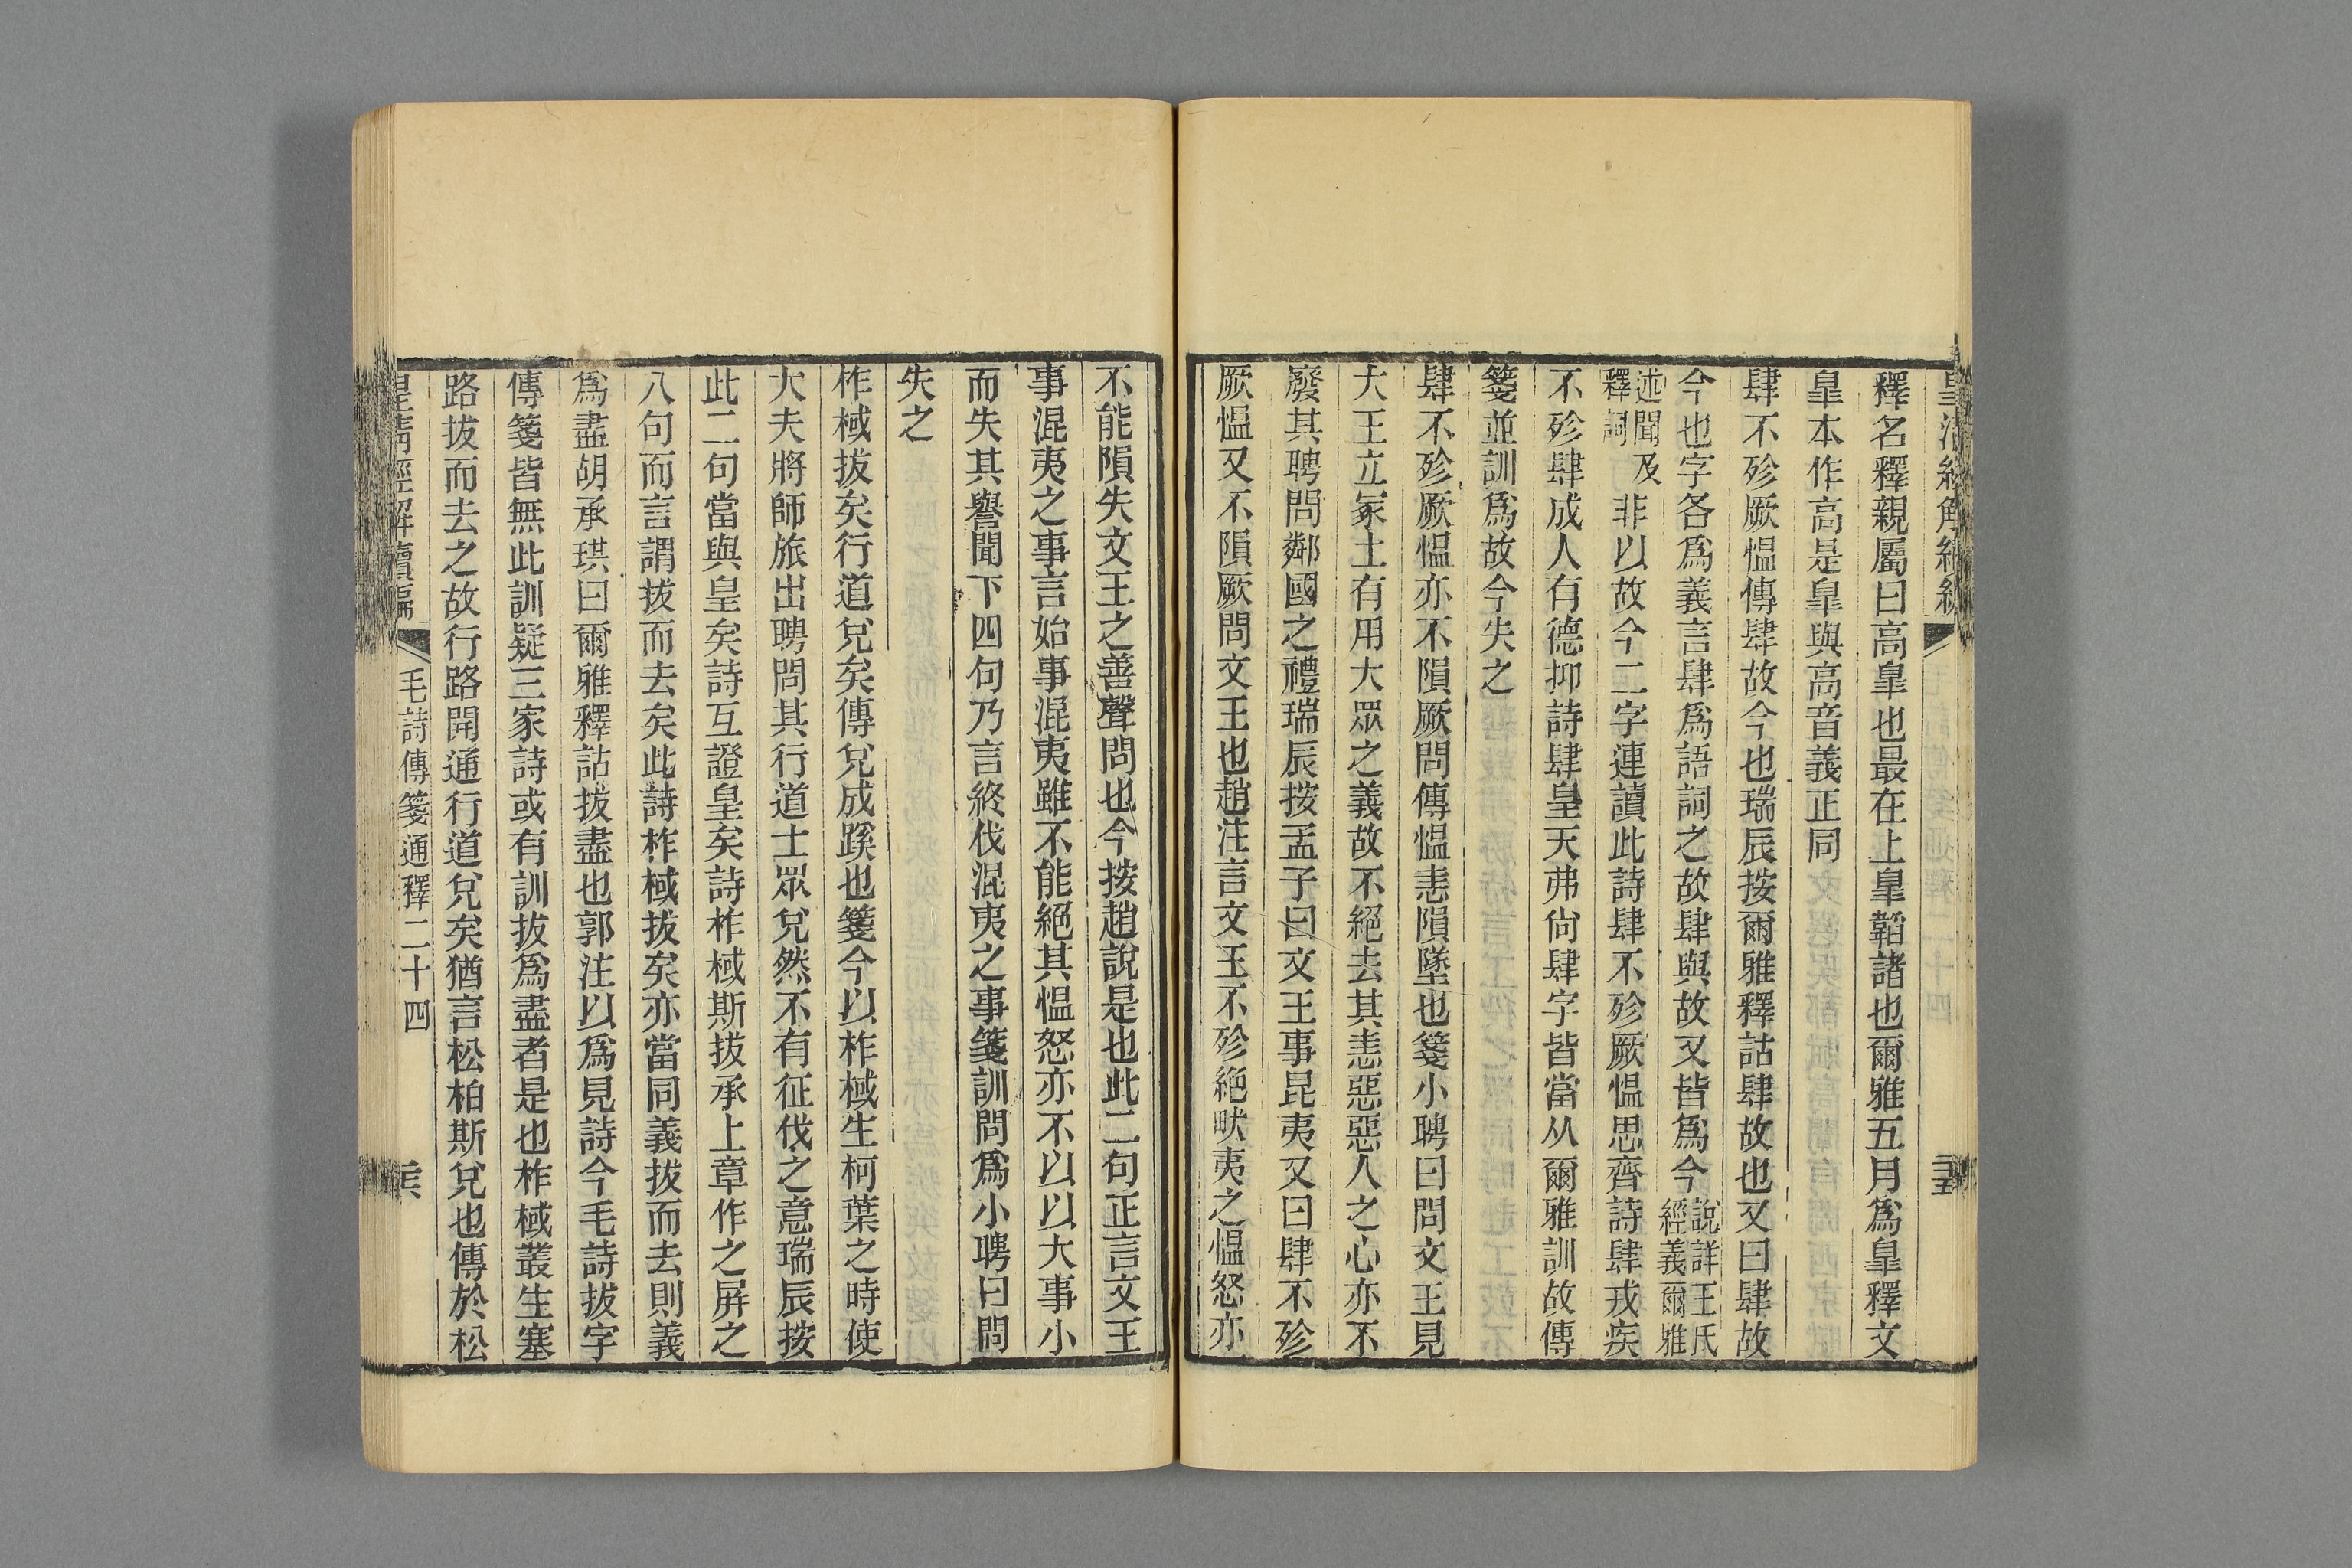 釋名釋親屬曰高皐也最在上皐韜諸也爾雅五月爲皐釋文
皐本作高是皐與高音義正同
肆不殄厥愠傳肆故今也瑞辰按爾雅釋詁肆故也又曰肆故
今也字各爲義言肆爲語詞之故肆與故又皆爲今說詳王氏經義爾雅
述聞及釋詞非以故今二字連讀此詩肆不殄厥愠思齊詩肆戎疾
不殄肆成人有德抑詩肆皇天弗尙肆字皆當从爾雅訓故傳
箋並訓爲故今失之
肆不殄厥愠亦不隕厥問傳愠恚隕墜也箋小聘曰問文王見
大王立冢土有用大眾之義故不絕去其恚惡惡人之心亦不
廢其聘問鄰國之禮瑞辰按孟子曰文王事昆夷又曰肆不殄
厥愠又不隕厥問文王也趙注言文王不殄絕畎夷之愠怒亦
不能隕失文王之善聲問也今按趙說是也此二句正言文王
事混夷之事言始事混夷雖不能絕其愠怒亦不以以大事小
而失其譽聞下四句乃言終伐混夷之事箋訓問爲小聘曰問
失之
柞棫拔矣行道兌矣傳兌成蹊也箋今以柞棫生柯葉之時使
大夫將師旅出聘問其行道士眾兌然不有征伐之意瑞辰按
此二句當與皇矣詩互證皇矣詩柞棫斯拔承上章作之屛之
八句而言謂拔而去矣此詩柞棫拔矣亦當同義拔而去則義
爲盡胡承珙曰爾雅釋詁拔盡也郭注以爲見詩今毛詩拔字
傳箋皆無此訓疑三家詩或有訓拔爲盡者是也柞棫叢生塞
路拔而去之故行路開通行道兌矣猶言松柏斯兌也傳於松
皇清經解續編 毛詩傳箋通釋二十四